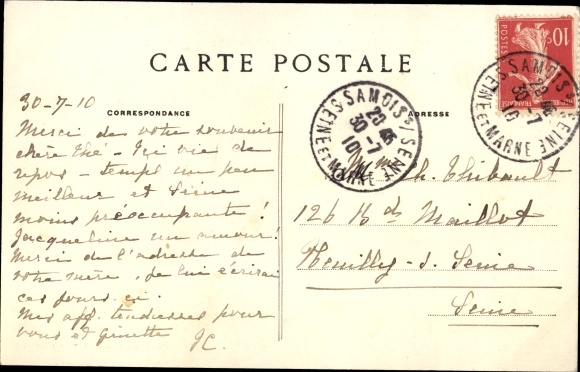 CARTE POSTALE
CORRESPONDANCE
ADRESSE
30-7-10
Merci de votre souvenir
chère Thé - Ici vie de
repos - temps un peu
meilleur et Seine
moins préoccupante !
Jacqueline un amour !
Merci de l'adresse de
votre mère, je lui écrirai
ces jours-ci.
Mes aff. tendresses pour
vous et Ginette JC.
Mme Ch. Thibault
126 Bd Maillot
Neuilly-s. Seine
Seine
SAMOIS S/ SEINE
30-7
10
SEINE ET MARNE
POSTES
10c
FRANÇAISE
SAMOIS S/ SEINE
30-7
10
SEINE ET MARNE